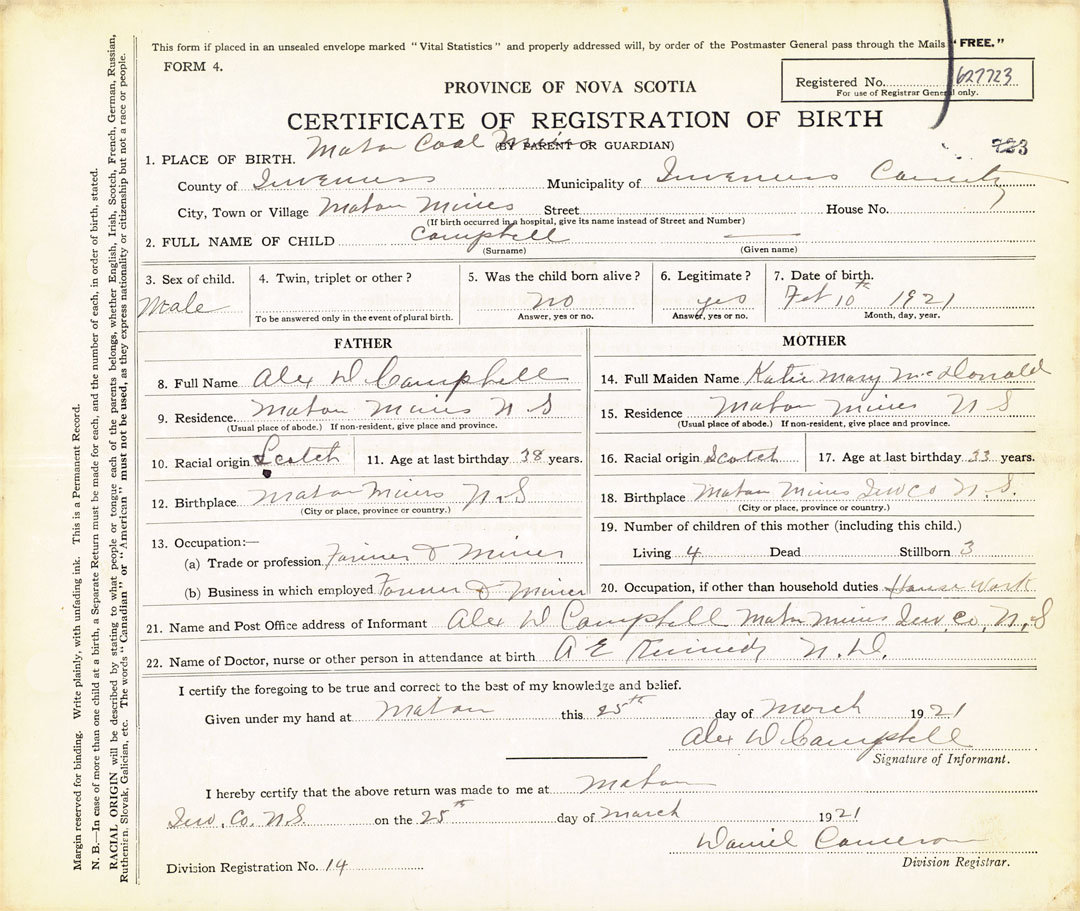 This form if placed in an unsealed envelope marked "Vital Statistics" and properly addressed will, by order of the Postmaster General pass through the Mails "FREE."
FORM 4.
Registered No. 627723
For use of Registrar General only.
PROVINCE OF NOVA SCOTIA
CERTIFICATE OF REGISTRATION OF BIRTH
(BY PARENT OR GUARDIAN)
723
1. PLACE OF BIRTH. Mabou Coal Mines
County of Inverness Municipality of Inverness County
City, Town or Village Mabou Mines Street House No.
(If birth occurred in a hospital, give its name instead of Street and Number)
2. FULL NAME OF CHILD Campbell —
(Surname) (Given name)
3. Sex of child. 4. Twin, triplet or other? 5. Was the child born alive? 6. Legitimate? 7. Date of birth.
Male no yes Feb 10th 1921
To be answered only in the event of plural birth. Answer, yes or no. Answer, yes or no. Month, day, year.
FATHER
8. Full Name Alex D Campbell
9. Residence. Mabou Mines N S
(Usual place of abode.) If non-resident, give place and province.
10. Racial origin Scotch 11. Age at last birthday 38 years.
12. Birthplace Mabou Mines N.S
(City or place, province or country.)
13. Occupation:—
(a) Trade or profession Farmer & Miner
(b) Business in which employed Farmer & Miner
MOTHER
14. Full Maiden Name Katie Mary McDonald
15. Residence Mabou Mines N S
(Usual place of abode.) If non-resident, give place and province.
16. Racial origin Scotch 17. Age at last birthday 33 years.
18. Birthplace Mabou Mines Inv Co N.S.
(City or place, province or country.)
19. Number of children of this mother (including this child.)
Living 4 Dead Stillborn 3
20. Occupation, if other than household duties House Work
21. Name and Post Office address of Informant Alex D Campbell Mabou Mines Inv, Co, N,S
22. Name of Doctor, nurse or other person in attendance at birth A E Kennedy M.D.
I certify the foregoing to be true and correct to the best of my knowledge and belief.
Given under my hand at Mabou this 25th day of March 1921
Alex D Campbell
Signature of Informant.
I hereby certify that the above return was made to me at Mabou
Inv, Co. N.S on the 25th day of March 1921
Daniel Cameron
Division Registrar.
Division Registration No. 14
Margin reserved for binding. Write plainly, with unfading ink. This is a Permanent Record.
N. B.—In case of more than one child at a birth, a Separate Return must be made for each, and the number of each, in order of birth, stated.
RACIAL ORIGIN will be described by stating to what people or tongue each of the parents belongs, whether English, Irish, Scotch, French, German, Russian,
Ruthenian, Slovak, Galician, etc. The words "Canadian" or "American" must not be used, as they express nationality or citizenship but not a race or people.